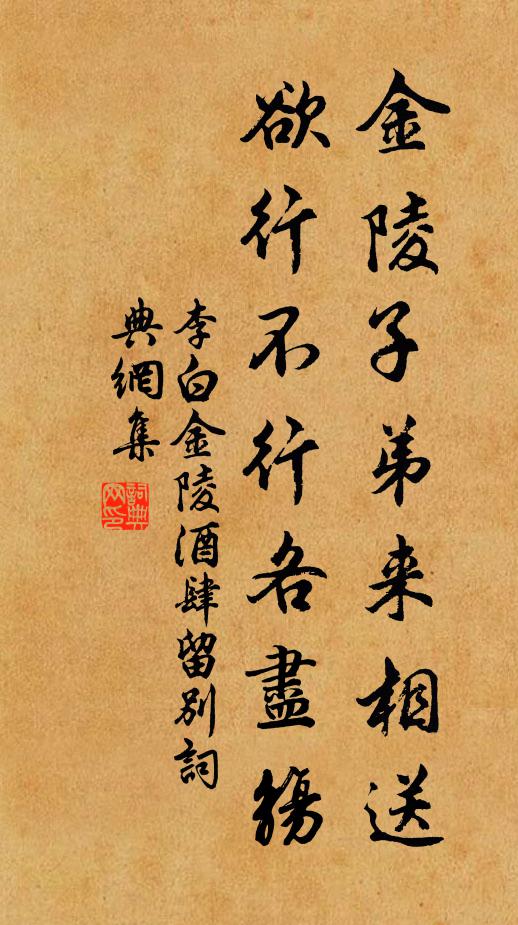 金陵子弟来相送
欲行不行各盡觴
李白金陵酒肆留别詞
典網集
詞典
网印